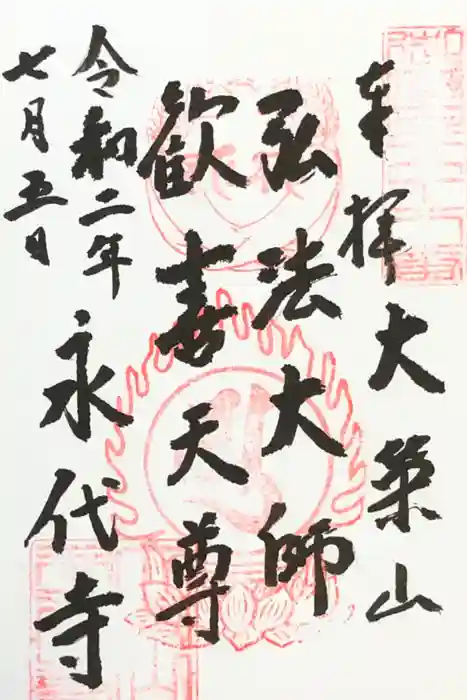 奉拝
大築山
弘法大師
歓喜天尊
令和二年
七月五日
永代寺